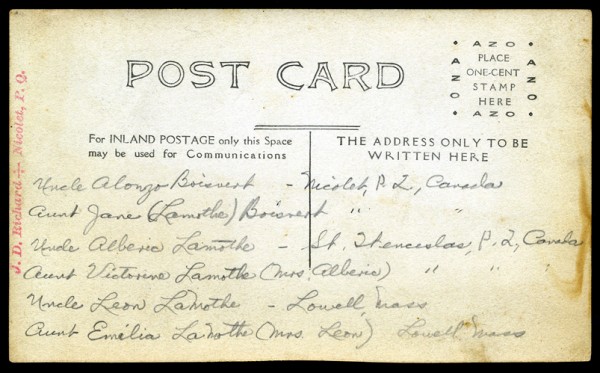 AZO
PLACE
AZO ONE-CENT AZO
STAMP
HERE
AZO
POST CARD
For INLAND POSTAGE only this Space
may be used for Communications
THE ADDRESS ONLY TO BE
WRITTEN HERE
J. D. Richard Nicolet, P. Q.
Uncle Alonzo Boisvert - Nicolet, P. Q., Canada
Aunt Jane (Lamothe) Boisvert " "
Uncle Alberic Lamothe - St. Wenceslas, P. Q., Canada
Aunt Victorine Lamothe (Mrs Alberic) " " "
Uncle Leon Lamothe - Lowell, Mass
Aunt Emélia Lamothe (Mrs. Leon) Lowell, Mass